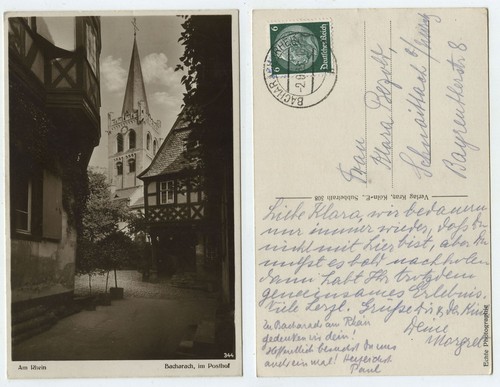 Am Rhein
Bacharach, im Posthof
344
BACHARACH
6
Deutsches Reich
6
Frau
Klara
Schnaittach
Bayreutherstr. 8
Verlag Kras, Köln-E.
Echte Photographie
Liebe Klara, wir bedauern
nur immer wieder, daß Du
nicht mit hier bist, aber Du
mußt es bald nachholen
dann habt Ihr trotzdem
gemeinsames Erlebnis.
Viele herzl. Grüße Dir u. den Kindern
Deine
Margret
In Bacharach am Rhein
gedenken wir dein!
Hoffentlich besuchst Du uns
auch einmal! Herzlichst
Paul